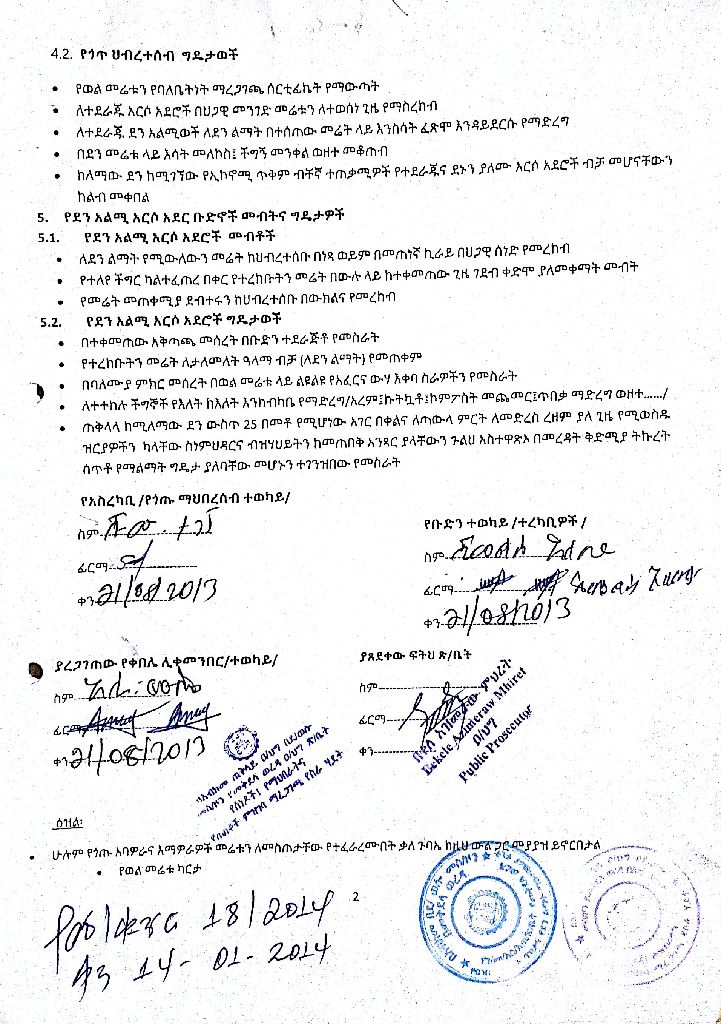 4.2. የጎጥ ህብረተሰብ ግዴታወች
• የወል መሬቱን የባለቤትነት ማረጋገጫ ሰርቲፊኬት የማውጣት
• ለተደራጁ አርሶ አደሮች በህጋዊ መንገድ መሬቱን ለተወሰነ ጊዜ የማስረከብ
• ለተደራጁ ደን አልሚወች ለደን ልማት በተሰጠው መሬት ላይ እንስሳት ፈጽሞ እንዳይደርሱ የማድረግ
• በደን መሬቱ ላይ እሳት መለኮስ፤ ችግኝ መንቀል ወዘተ መቆጠብ
• ከለማው ደን ከሚገኘው የኢኮኖሚ ጥቅም ብቸኛ ተጠቃሚዎች የተደራጁና ደኑን ያለሙ አርሶ አደሮች ብቻ መሆናቸውን
ከልብ መቀበል
5. የደን አልሚ አርሶ አደር ቡድኖች መብትና ግዴታዎች
5.1. የደን አልሚ አርሶ አደሮች መብቶች
• ለደን ልማት የሚውለውን መሬት ከህብረተሰቡ በነጻ ወይም በመጠነኛ ኪራይ በህጋዊ ሰነድ የመረከብ
• የተለየ ችግር ካልተፈጠረ በቀር የተረከቡትን መሬት በውሉ ላይ ከተቀመጠው ጊዜ ገደብ ቀድሞ ያለመቀማት መብት
• የመሬት መጠቀሚያ ደብተሩን ከህብረተሰቡ በውክልና የመረከብ
5.2. የደን አልሚ አርሶ አደሮች ግዴታወች
• በተቀመጠው አቅጣጫ መሰረት በቡድን ተደራጅቶ የመስራት
• የተረከቡትን መሬት ለታለመለት ዓላማ ብቻ (ለደን ልማት) የመጠቀም
• በባለሙያ ምክር መሰረት በወል መሬቱ ላይ ልዩልዩ የአፈርና ውሃ እቀባ ስራዎችን የመስራት
• ለተተከሉ ችግኞች የእለት ከእለት እንክብካቤ የማድረግ/አረም፤ኩትኳቶ፤ኮምፖስት መጨመር፤ጥበቃ ማድረግ ወዘተ....../
• ጠቅላላ ከሚለማው ደን ውስጥ 25 በመቶ የሚሆነው አገር በቀልና ለጣውላ ምርት ለመድረስ ረዘም ያለ ጊዜ የሚወስዱ
ዝርያዎችን ካላቸው ስነምህዳርና ብዝሃህይትን ከመጠበቅ አንጻር ያላቸውን ጉልህ አስተዋጽኦ በመረዳት ቅድሚያ ትኩረት
ሰጥቶ የማልማት ግዴታ ያለባቸው መሆኑን ተገንዝበው የመስራት
የአስረካቢ /የጎጡ ማህበረሰብ ተወካይ/
ስም
ፊርማ
ቀን 21/08/2013
የቡድን ተወካይ /ተረካቢዎች /
ስም
ፊርማ
ቀን 21/08/2013
ያረጋገጠው የቀበሌ ሊቀመንበር/ተወካይ/
ስም
ፊርማ
ቀን 21/08/2013
ያጸደቀው ፍትህ ጽ/ቤት
ስም
ፊርማ
ቀን
በቀለ አስመራው ምህረት
Bekele Asimeraw Mhiret
ዐ/ህግ
Public Prosecutor
ዕዝል፡
• ሁሉም የጎጡ አባዎራና እማዎራዎች መሬቱን ለመስጠታቸው የተፈራረሙበት ቃለ ጉባኤ ከዚህ ውል ጋር መያያዝ ይኖርበታል
• የወል መሬቱ ካርታ
2
18/2014
ቀን 14-01-2014